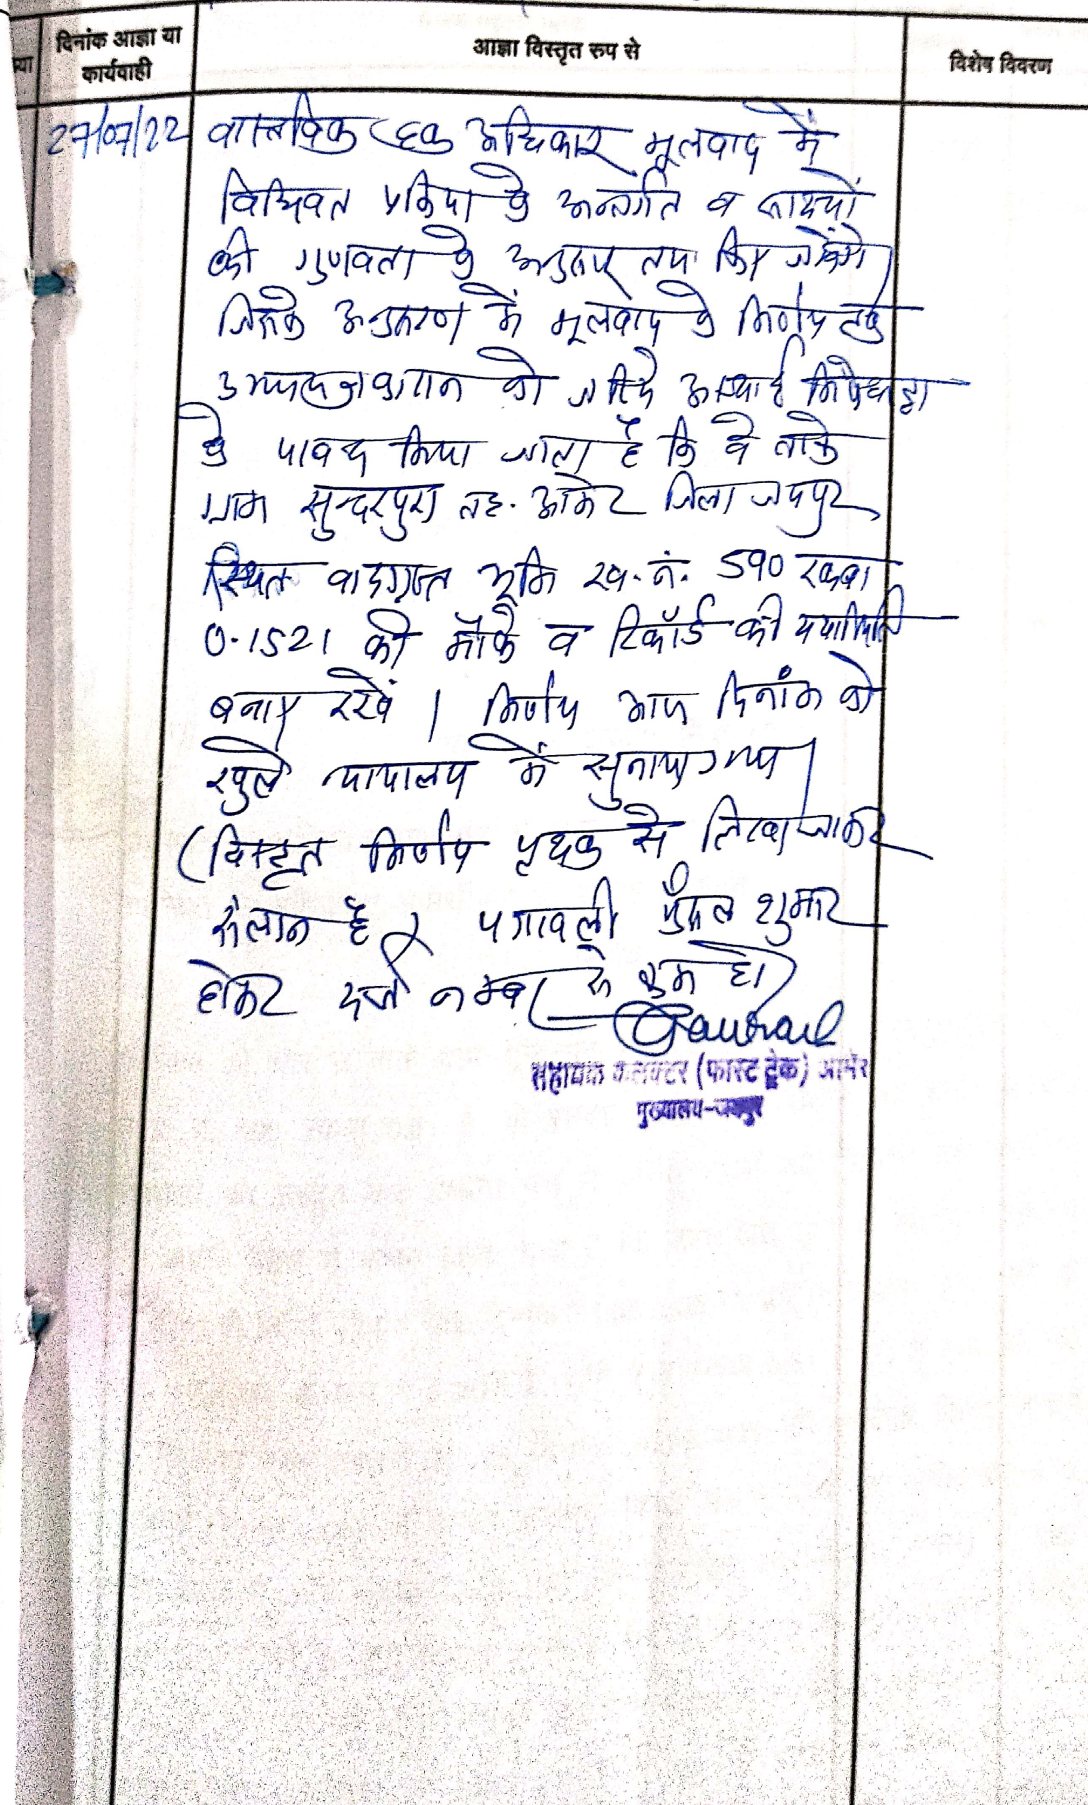 दिनांक आज्ञा या
कार्यवाही
आज्ञा विस्तृत रुप से
विशेष विवरण
27/07/22 वास्तविक हक अधिकार मूलवाद में
विधिवत प्रक्रिया के अन्तर्गत व साक्ष्यों
की गुणवता के अनुरूप तय किए जायेंगे।
जिसके अनुसरण में मूलवाद के निर्णय तक
उभयपक्षकारान को जरिये अस्थाई निषेधाज्ञा
के पाबन्द किया जाता है कि वे वाके
ग्राम सुन्दरपुरा तह. आमेर जिला जयपुर
स्थित वादग्रस्त भूमि ख. नं. 590 रकबा
0.1521 की मौके व रिकॉर्ड की यथास्थिति
बनाए रखें। निर्णय आज दिनांक को
खुले न्यायालय में सुनाया गया।
(विस्तृत निर्णय पृथक से लिखा जाकर
संलग्न है) पत्रावली फैसल शुमार
होकर दर्ज नम्बर से कम हो।
सहायक कलक्टर (फास्ट ट्रेक) आमेर
मुख्यालय-जयपुर